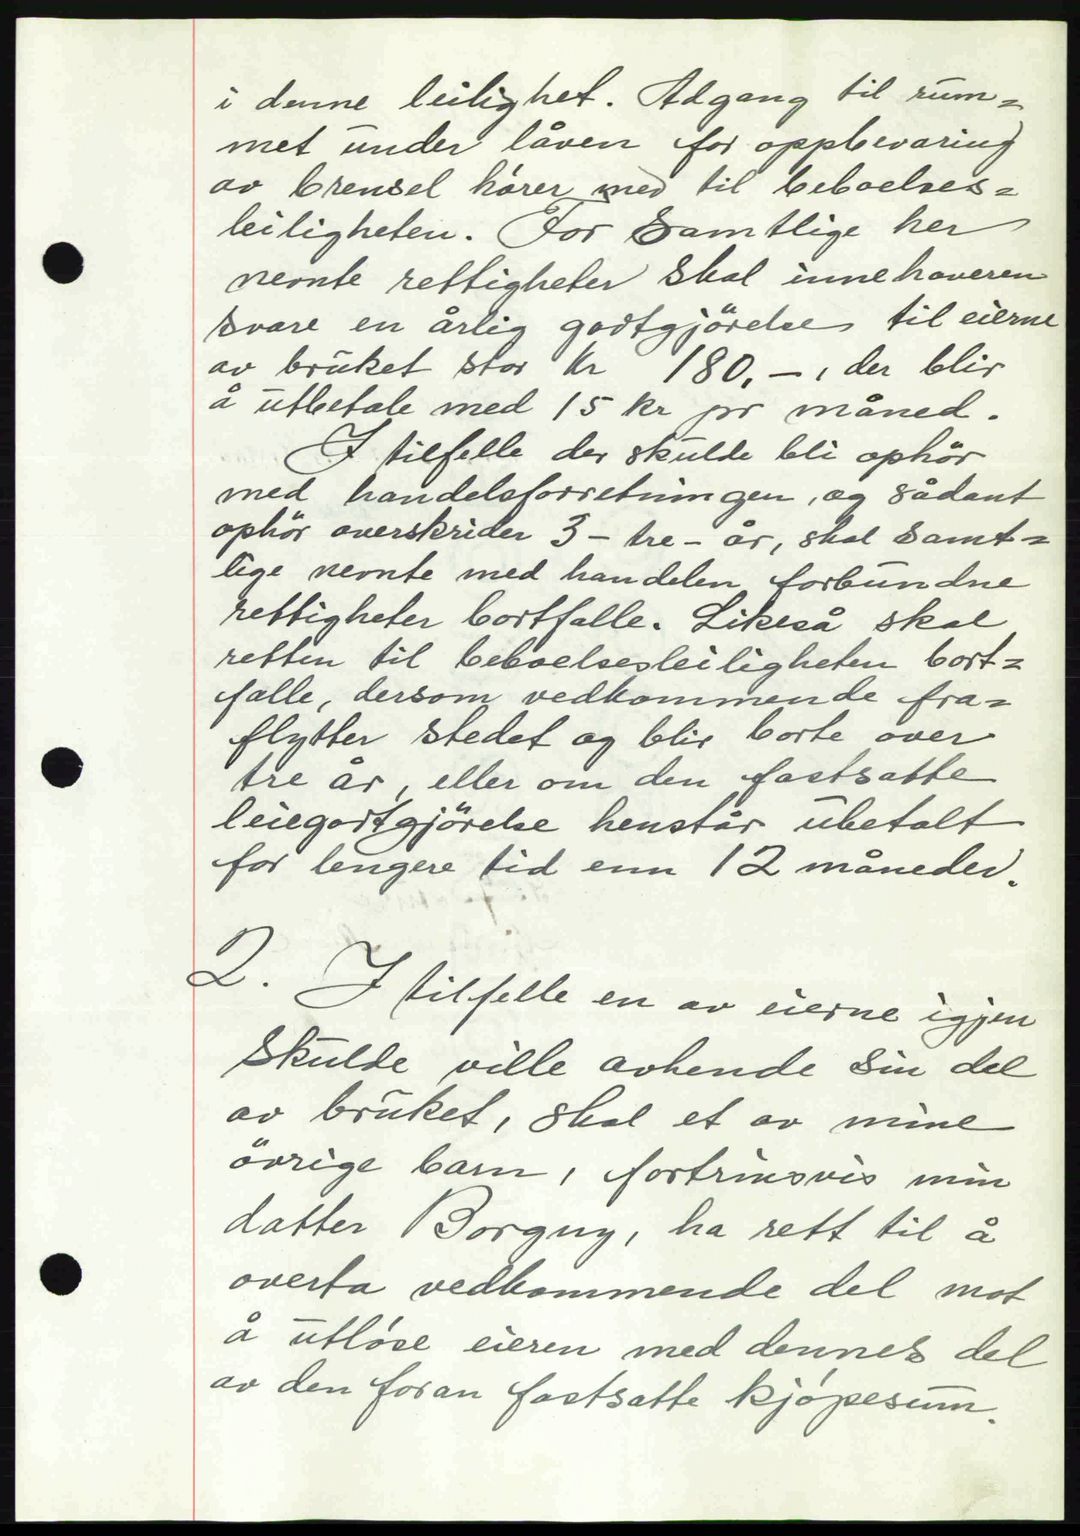 i denne leilighet. Adgang til rum=
met under låven for oppbevaring
av brensel hører med til beboelses=
leiligheten. For samtlige her
nevnte rettigheter skal innehaveren
svare en årlig godtgjörelse til eierne
av bruket stor kr 180.-, der blir
å utbetale med 15 kr pr måned.
I tilfelle der skulde bli ophör
med handelsforretningen, og sådant
ophör overskrider 3 - tre - år, skal samt=
lige nevnte med handelen forbundne
rettigheter bortfalle. Likeså skal
retten til beboelsesleiligheten bort=
falle, dersom vedkommende fra=
flytter stedet og blir borte over
tre år, eller om den fastsatte
leiegodtgjörelse henstår ubetalt
for lengere tid enn 12 måneder.
2. I tilfelle en av eierne igjen
skulde ville avhende sin del
av bruket, skal et av mine
övrige barn, fortrinsvis min
datter Borgny, ha rett til å
overta vedkommende del mot
å utløse eieren med dennes del
av den foran fastsatte kjøpesum.